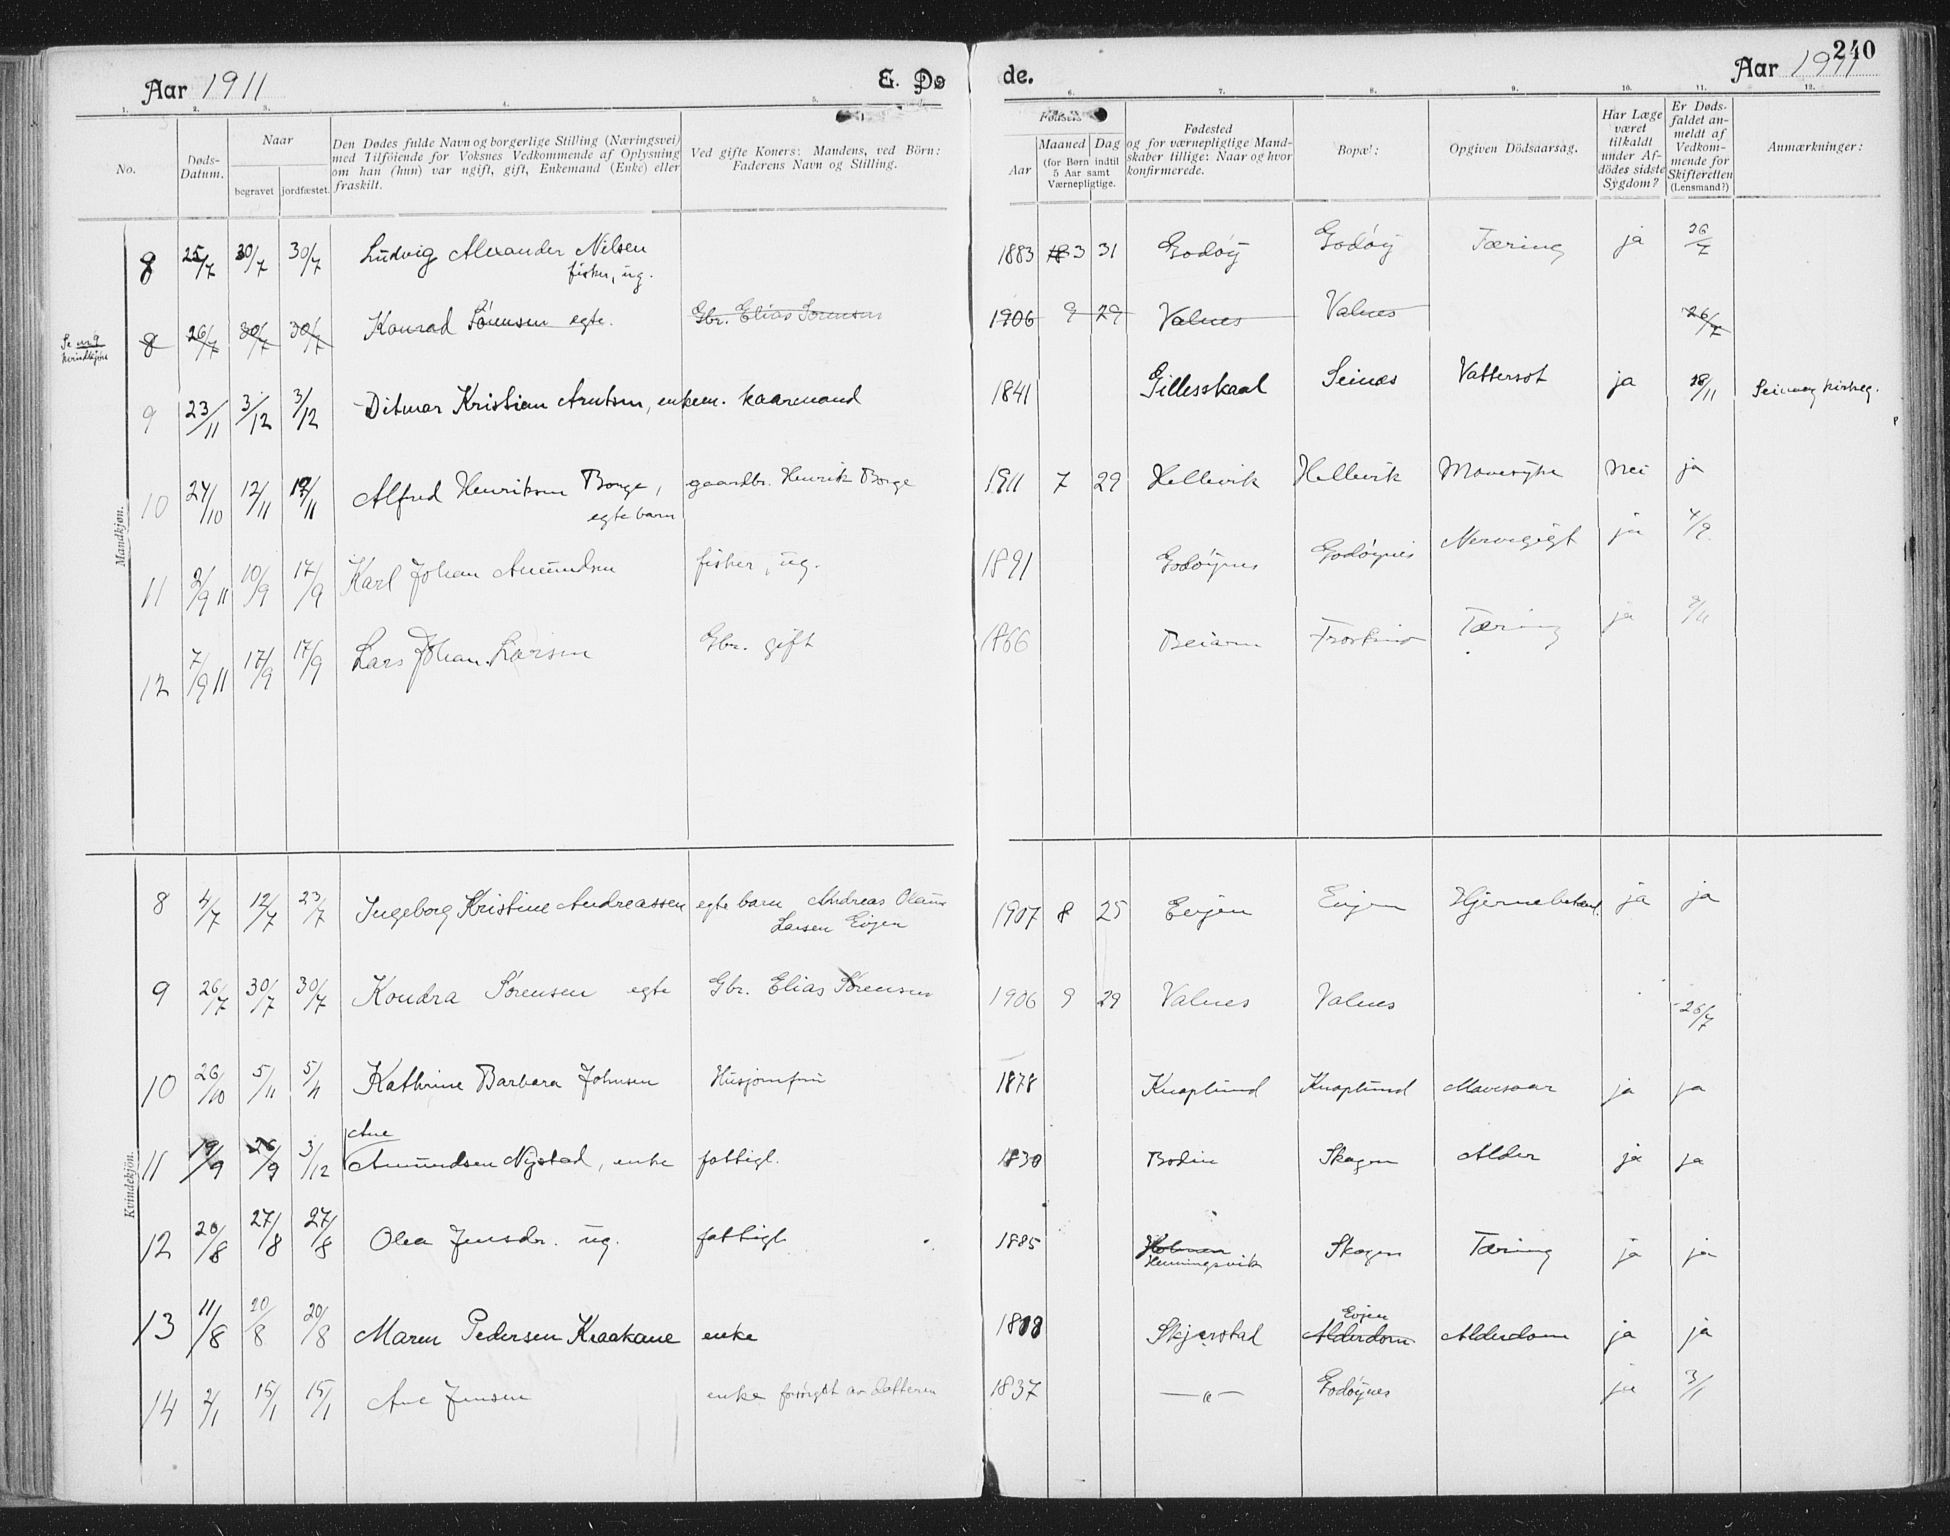 240
Aar 1911
E. Dø
de.
Aar 1911
1. 2. 3. 4. 5. 6. 7. 8. 9. 10. 11. 12.
No.
Døds-
Datum.
Naar
begravet
jordfæstet.
Den Dødes fulde Navn og borgerlige Stilling (Næringsvei)
med Tilföiende for Voksnes Vedkommende af Oplysning
om han (hun) var ugift, gift, Enkemand (Enke) eller
fraskilt.
Ved gifte Koners: Mandens, ved Börn:
Faderens Navn og Stilling.
Fødsels
Aar
Maaned
Dag
(for Børn indtil
5 Aar samt
Værnepligtige.
Fødested
og for værnepligtige Mand-
skaber tillige: Naar og hvor
konfirmerede.
Bopæl:
Opgiven Dödsaarsag.
Har Læge
været
tilkaldt
under Af-
dödes sidste
Sygdom?
Er Døds-
faldet an-
meldt af
Vedkom-
mende for
Skifteretten
(Lensmand?)
Anmærkninger:
Mandkjøn.
8 25/7 30/7 30/7 Ludvig Alexander Nilsen 1883 3 31 Godöy Godöy Tæring ja 26/7
fisker, ug.
Se no 9
kvindekjøn
8 26/7 30/7 30/7 Konrad Sörensen egte. Gbr. Elias Sorensen 1906 9 29 Valnes Valnes 26/7
9 23/11 3/12 3/12 Ditmar Kristian Arntsen, enkem. kaarmand 1841 Gillesskaal Seines Vattersot ja 28/11
10 24/10 12/11 12/11 Alfred Henriksen Borge, gaardbr. Henrik Borge 1911 7 29 Hellevik Hellevik Mavesyke nei ja
egte barn
11 2/9 11 10/9 17/9 Karl Johan Amundsen fisher, ug. 1891 Godöynes Godöynes Nervegigt ja 4/9
12 7/9 11 17/9 17/9 Lars Johan Larsen Gbr. gift 1866 Beiarn Tæring ja
Kvindekjön.
8 4/7 12/7 23/7 Ingeborg Kristine Andreassen egte barn Andreas Olaus 1907 8 25 Evjen Evjen Hjernebetænd. ja ja
Larsen Evjen
9 26/7 30/7 30/7 Kondra Sörensen egte Gbr. Elias Sörensen 1906 9 29 Valnes Valnes 26/7
10 26/10 5/11 5/11 Kathrine Barbara Johnsen Husjomfru 1878 Knaplund Knaplund Mavesaar ja ja
Ane
11 19/9 26/9 3/12 Amundsen Nystad, enke fattigl. 1830 Bodin Skagen Alder ja ja
12 20/8 27/8 27/8 Olea Jensdr. ug. fattigl. 1885 Holmen Skagen Tæring ja ja
Henningsvik
Evjen
13 11/8 20/8 20/8 Maren Pedersen Kraakane enke Skjerstad Alderdom Alderdom ja ja
14 2/1 15/1 15/1 Ane Jensen enke forsörget av datteren 1837 —"— Godöynes ja 3/1